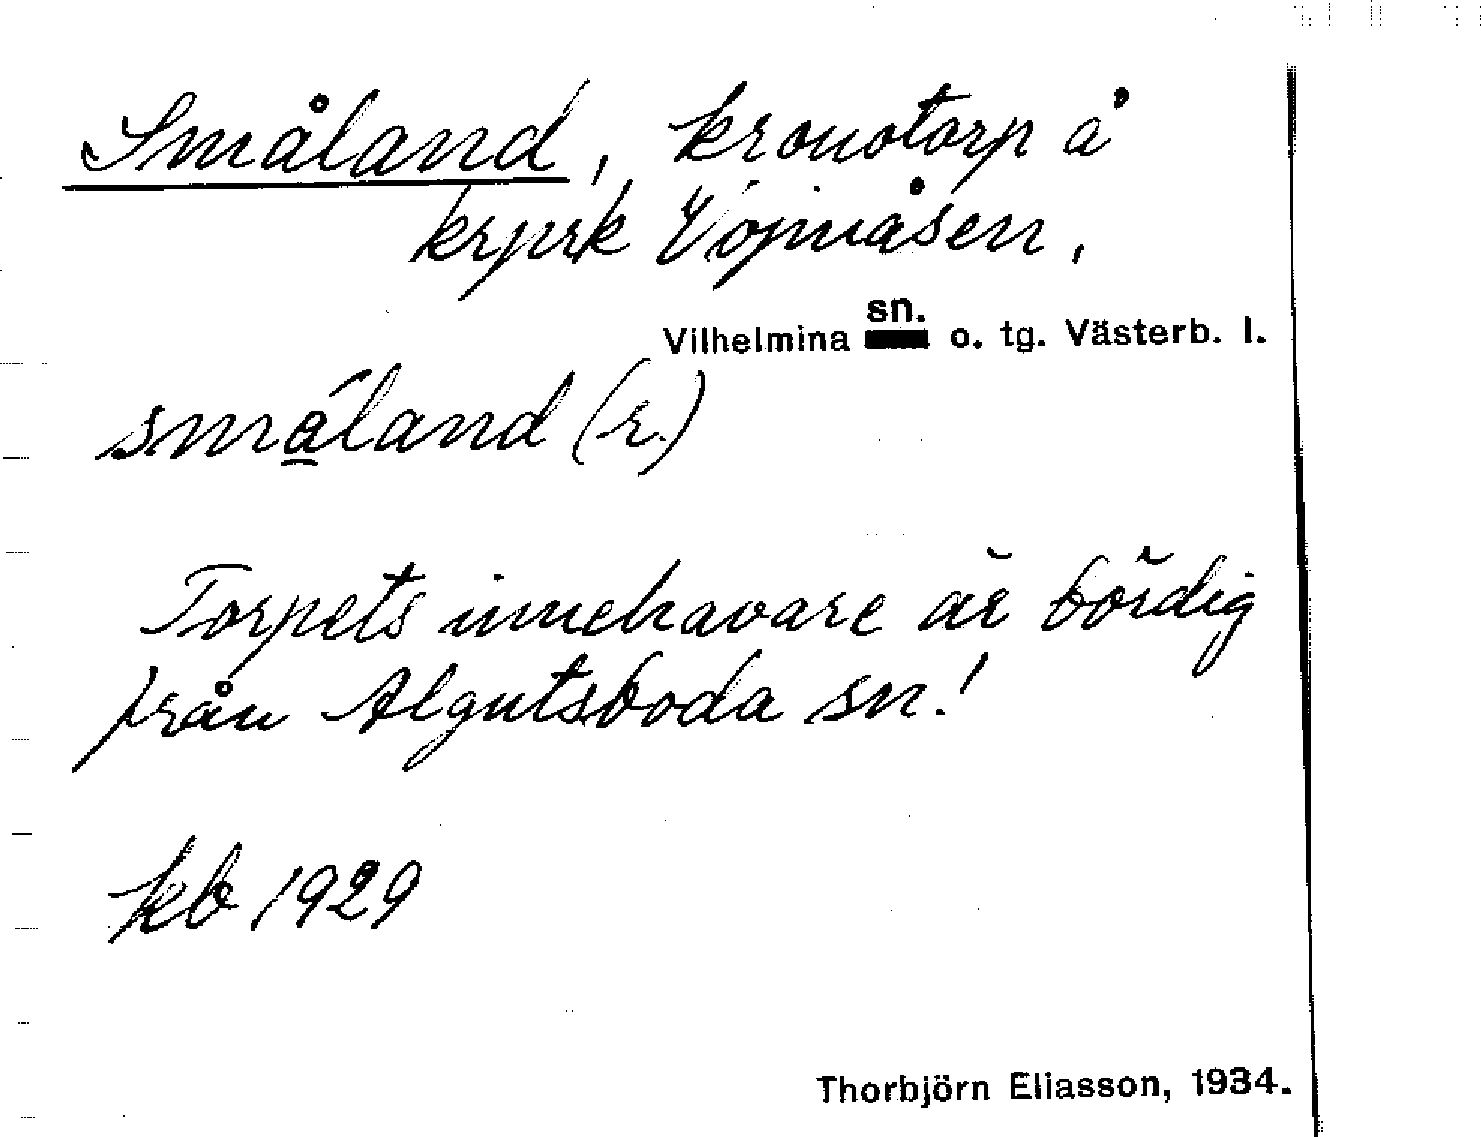 Småland, kronotorp å
krprk Vojmåsen,
Vilhelmina sn. o. tg. Västerb. l.
småland (r.)
Torpets innehavare är bördig
från Algutsboda sn!
kb 1929
Thorbjörn Eliasson, 1934.